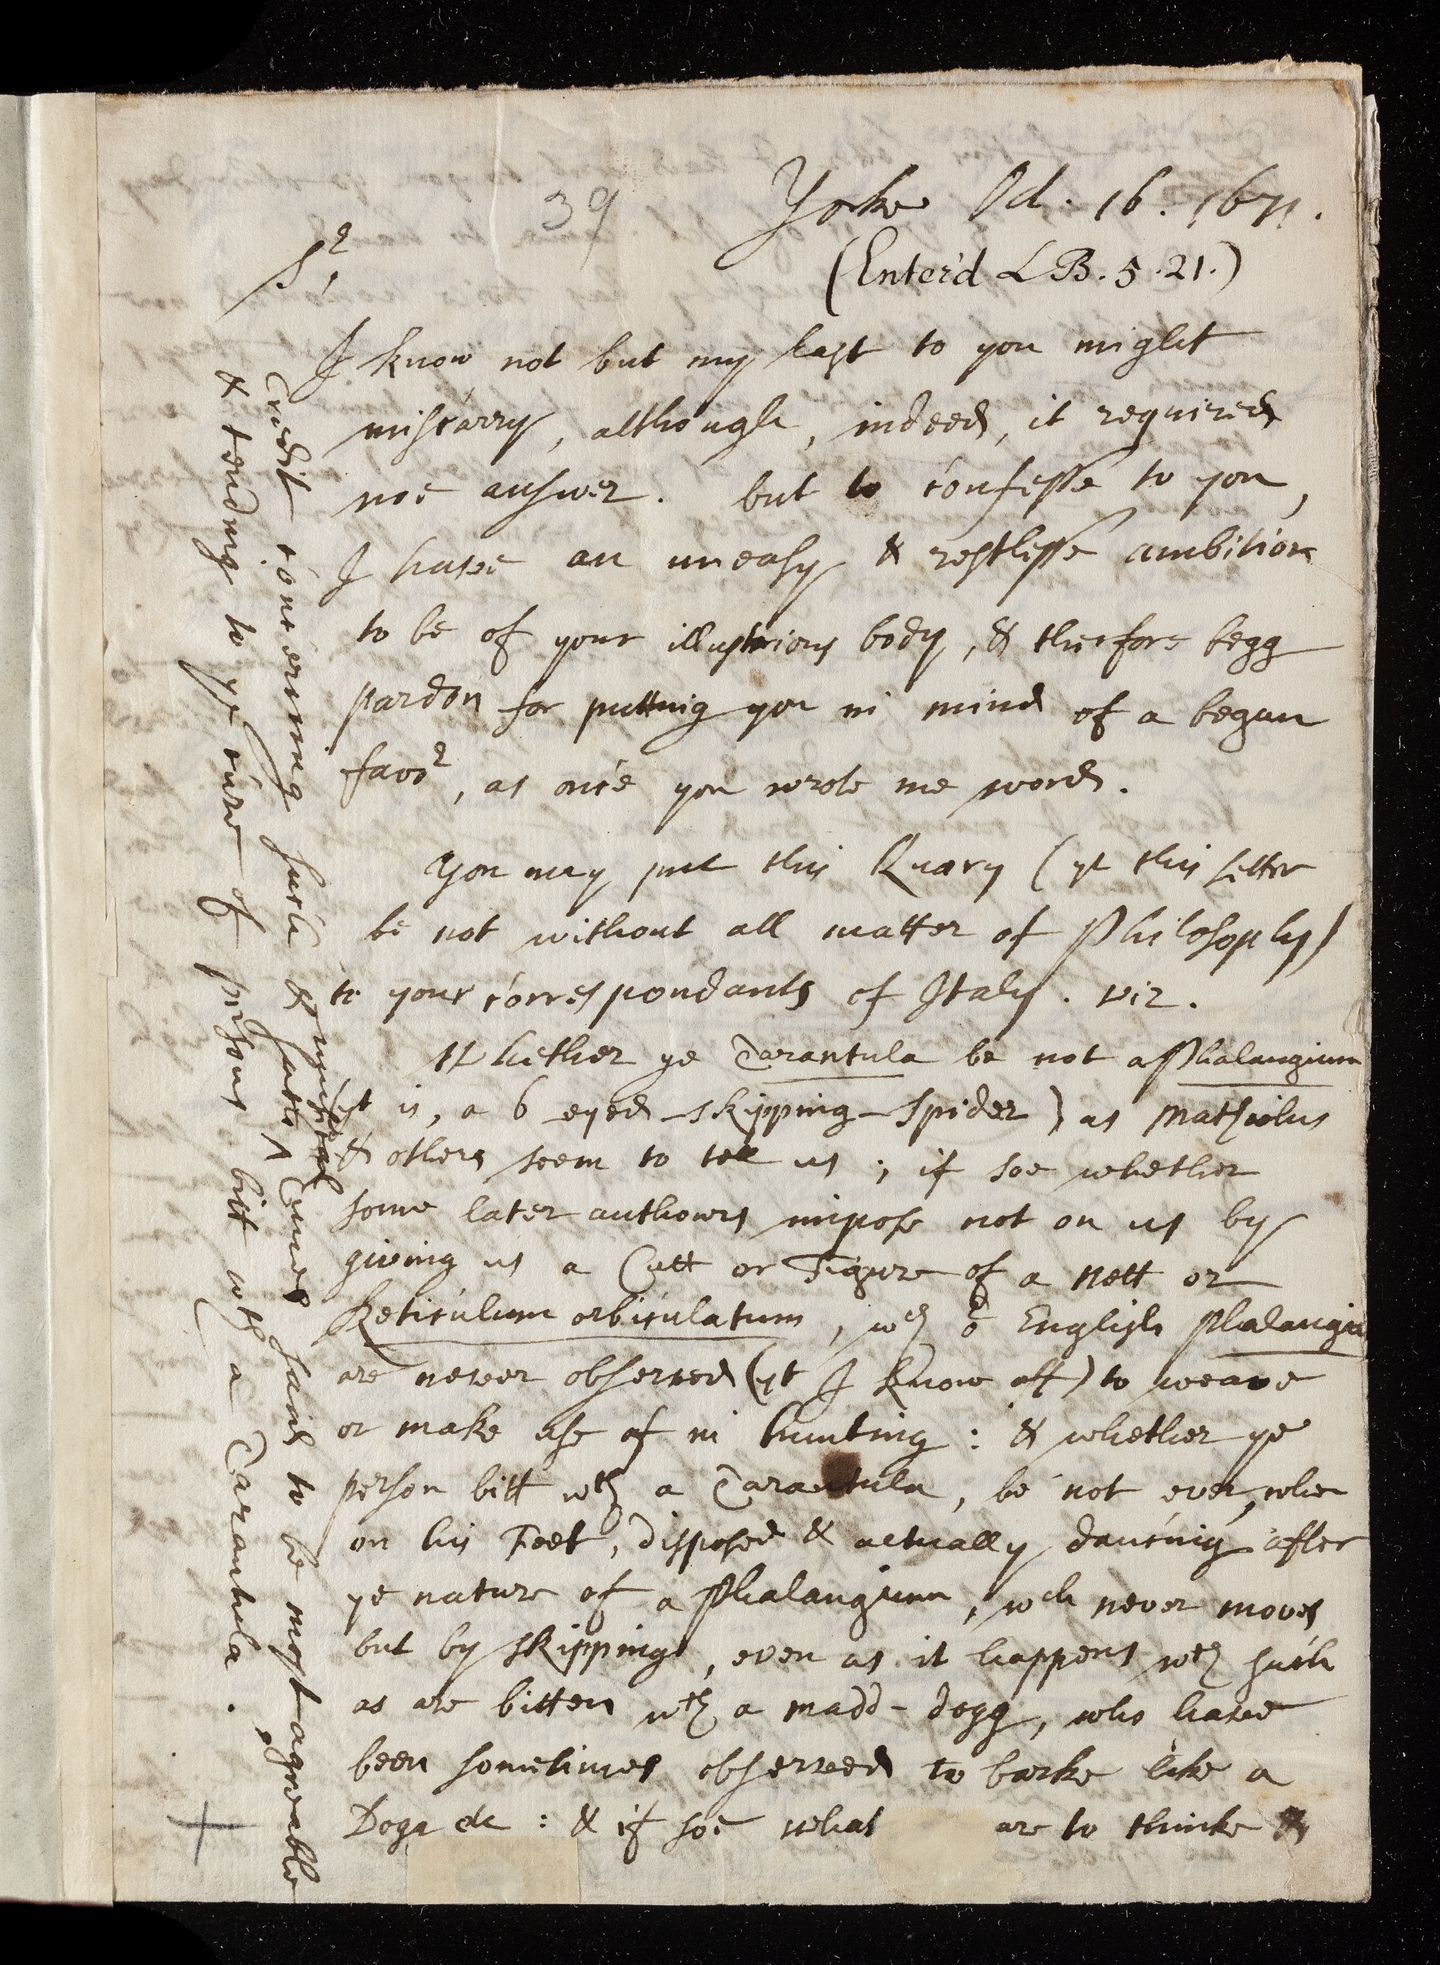 39
Yorke Oct. 16. 1671.
(Enter'd L B. 5. 21.)
Sr,
I know not but my last to you might
miscarry, although, indeed, it required
noe answer. but to confesse to you,
I have an uneasy & restlesse ambition
to be of your illustrious body, & therfore begg
pardon for putting you in mind of a begun
favor, as once you wrote me word.
You may put this Quaery (yt this Letter
be not without all matter of Philosophy)
to your correspondants of Italy. viz.
Whether ye Tarantula be not a Phalangium
(yt is, a 6 eyed skipping-Spider) as Mathiolus
& others seem to tell us; if soe whether
some later authours impose not on us by
giving us a Cutt or Figure of a Nett or
Reticulum orbiculatum, wch o English Phalangia
are never observed (yt I know off) to weave
or make use of in hunting: & whether ye
person bitt wth a Tarantula, be not ever, when
on his Feet, disposed & actually dancing after
ye nature of a Phalangium, wch never moves
but by skipping, even as it happens wth such
as are bitten wth a madd-dogg, who have
been sometimes observed to barke like a
Dogg &c: & if soe what are to thinke
credit concerning such & such musical Tunes said to be most agreable
& tending to ye cure of persons bitt wth a Tarantula.